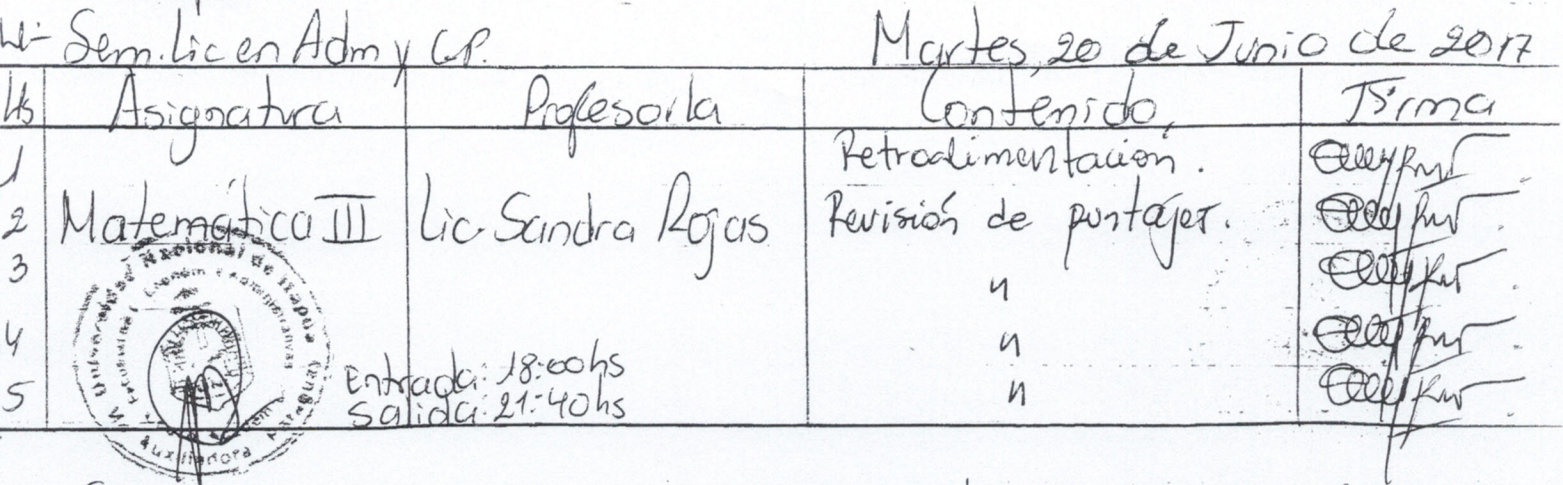 Sem. Lic en Adm y C.P. Martes, 20 de Junio de 2017
Hs Asignatura Profesor/a Contenido, Firma
1 Retroalimentación.
2 Matemática III Lic. Sandra Rojas Revisión de puntajes.
3 "
4 "
5 "
Entrada: 18:00hs
Salida: 21:40hs
Universidad Nacional de Itapúa
Auxiliadora